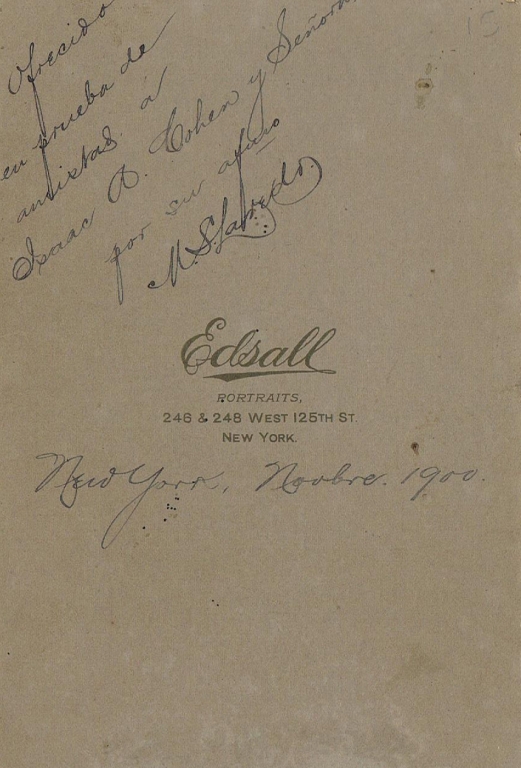 Ofrecido
en prueba de
amistad á
Isaac A. Cohen y Señora
por su afmo
M. S. Laredo.
Edsall
PORTRAITS,
246 & 248 WEST 125TH ST.
NEW YORK.
New York, Novbre. 1900.
15